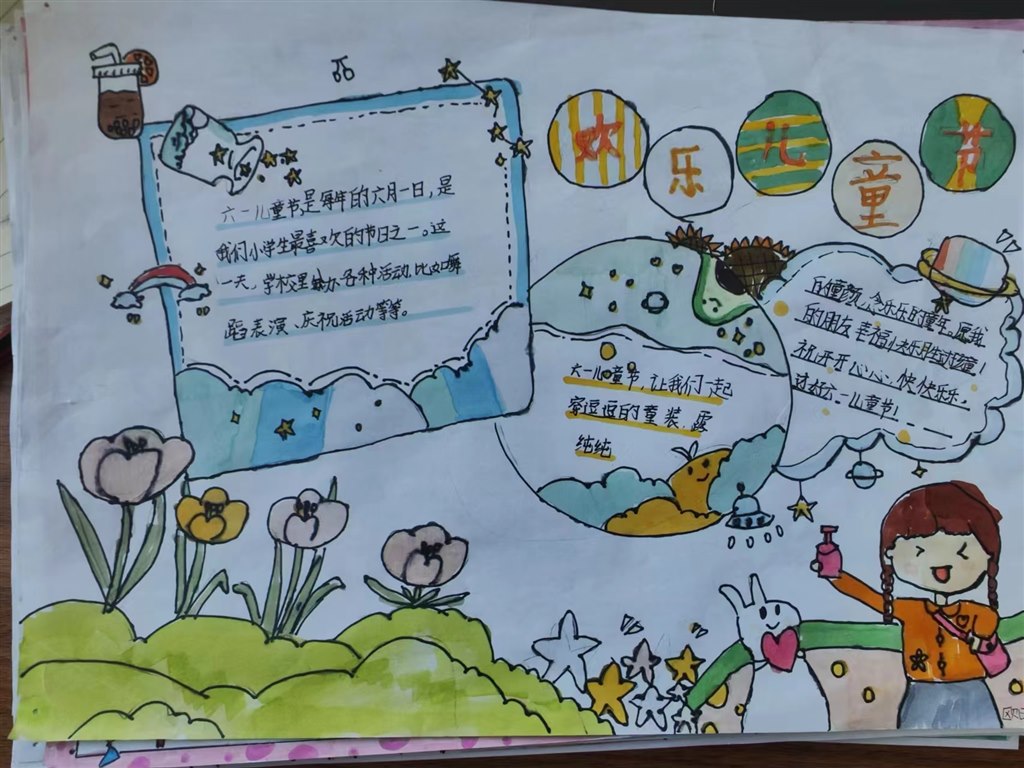 欢乐儿童节
六一儿童节是每年的六月一日,是
我们小学生最喜欢的节日之一。这
一天,学校里举办各种活动,比如舞
蹈表演、庆祝活动等等。
六一儿童节,让我们一起
穿逗逗的童装,露
纯纯
乐乐的童年,愿我
的朋友幸福快乐
祝开开心心,快快乐乐。
过好六一儿童节!